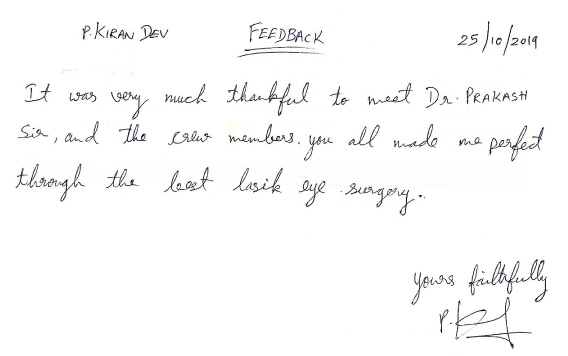 P. KIRAN DEV FEEDBACK 25/10/2019
It was very much thankful to meet Dr. PRAKASH
Sir, and the crew members. you all made me perfect
through the best lasik eye surgery.
yours faithfully
P.